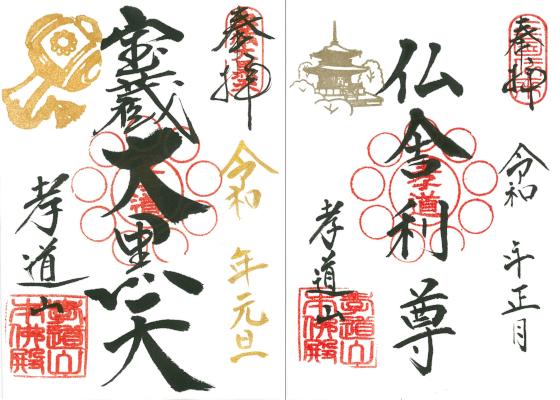 奉拝
令和 年元旦
宝蔵大黒天
孝道山
孝道山
本佛殿
奉拝
令和 年正月
仏舎利尊
孝道山
孝道山
本佛殿